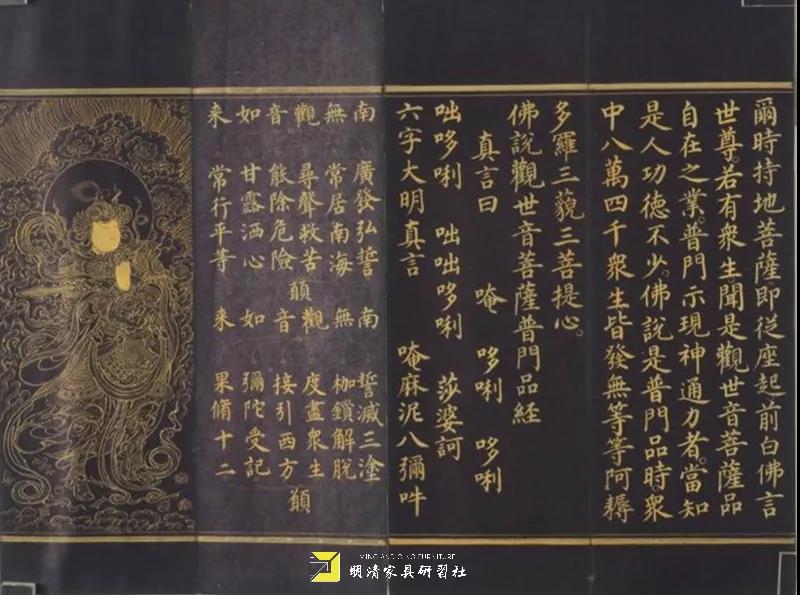 爾時持地菩薩即從座起前白佛言
世尊。若有衆生聞是觀世音菩薩品
自在之業。普門示現神通力者。當知
是人功德不少。佛說是普門品時。衆
中八萬四千衆生皆發無等等阿耨
多羅三藐三菩提心。
佛說觀世音菩薩普門品經
真言曰 唵 哆唎 哆唎
咄哆唎 咄咄哆唎 莎婆訶
六字大明真言 唵麻泥八彌吽
南無觀音如来
廣發弘誓
常居南海
尋聲救苦
能除危險
甘露洒心
常行平等
願
南無觀音如来
誓滅三塗
枷鎖解脫
度盡衆生
接引西方
彌陀受記
果脩十二
願
MING AND QING FURNITURE
明清家具研習社